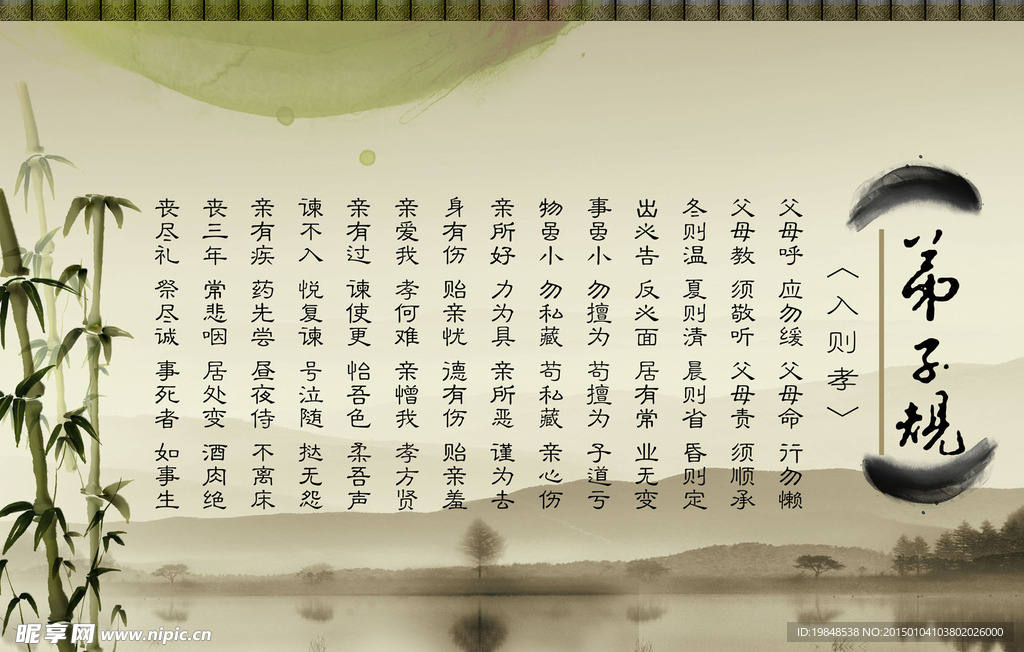 弟子规
〈入则孝〉
父母呼 应勿缓 父母命 行勿懒
父母教 须敬听 父母责 须顺承
冬则温 夏则清 晨则省 昏则定
出必告 反必面 居有常 业无变
事虽小 勿擅为 苟擅为 子道亏
物虽小 勿私藏 苟私藏 亲心伤
亲所好 力为具 亲所恶 谨为去
身有伤 贻亲忧 德有伤 贻亲羞
亲爱我 孝何难 亲憎我 孝方贤
亲有过 谏使更 怡吾色 柔吾声
谏不入 悦复谏 号泣随 挞无怨
亲有疾 药先尝 昼夜侍 不离床
丧三年 常悲咽 居处变 酒肉绝
丧尽礼 祭尽诚 事死者 如事生
昵享网 www.nipic.cn
ID:19848538 NO:20150104103802026000